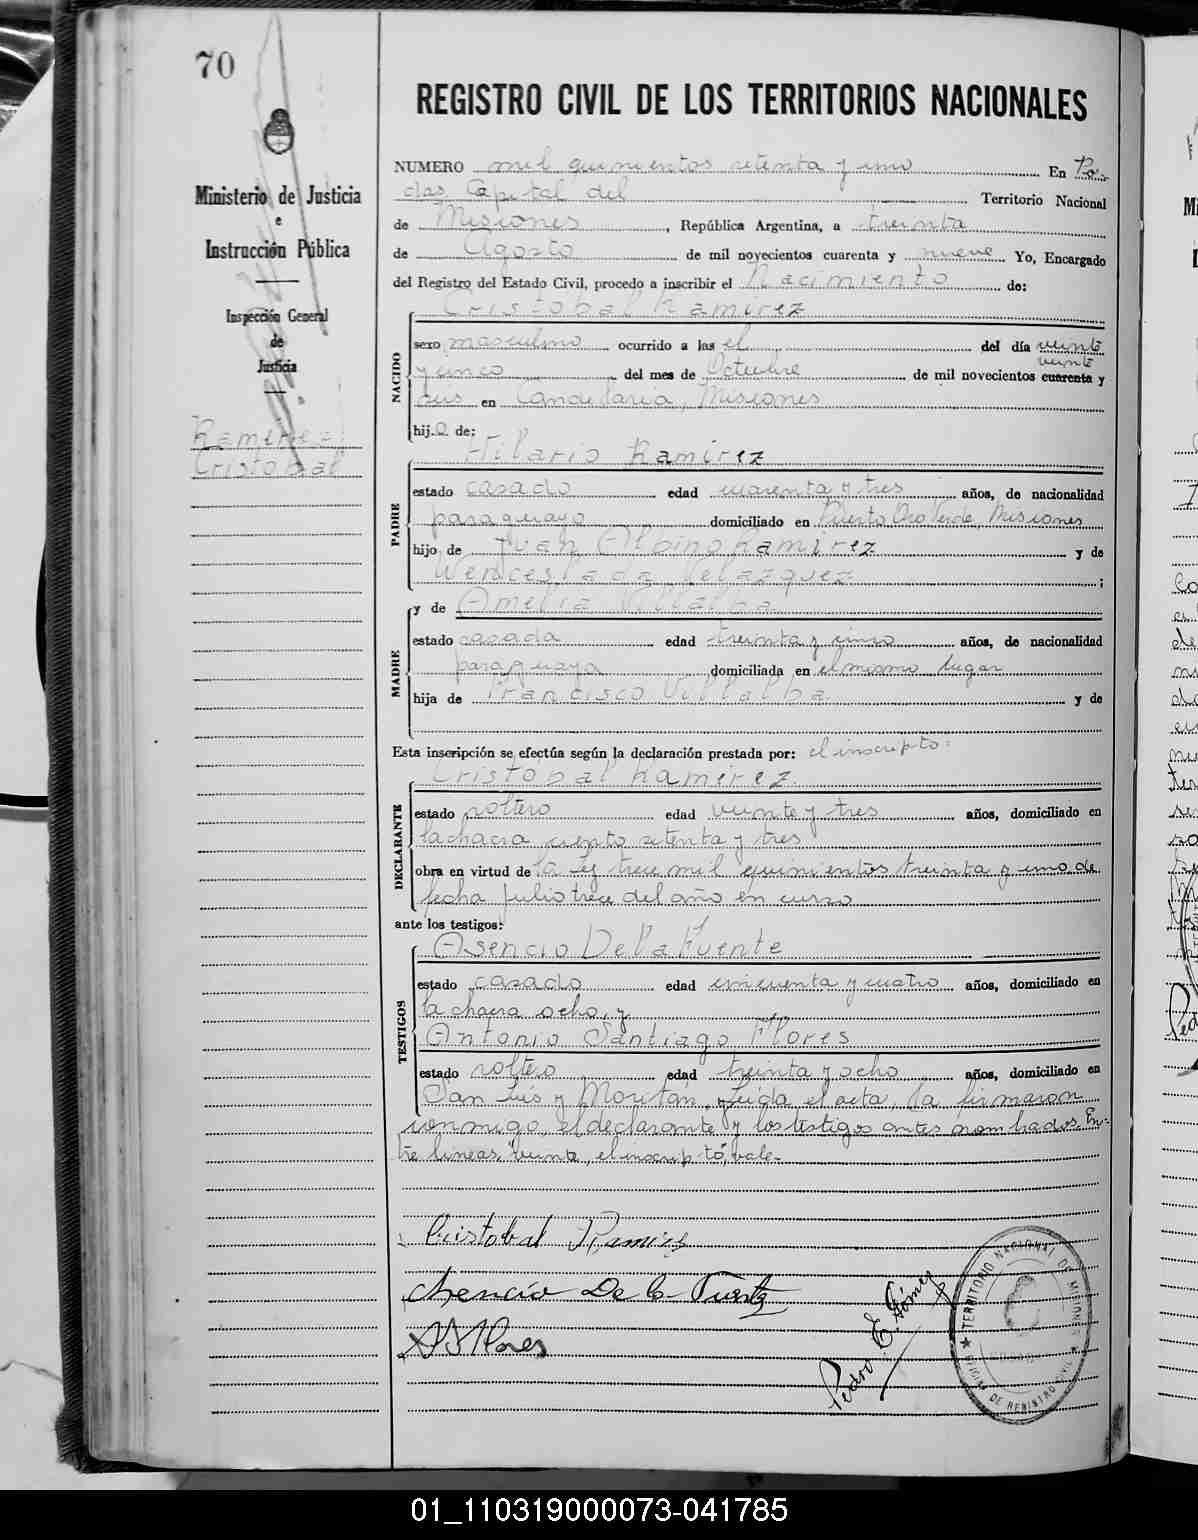 70
Ministerio de Justicia
e
Instrucción Pública
Inspección General
de
Justicia
Ramirez
Cristobal
REGISTRO CIVIL DE LOS TERRITORIOS NACIONALES
NUMERO mil quinientos setenta y uno En Po-
das Capital del Territorio Nacional
de Misiones, República Argentina, a treinta
de Agosto de mil novecientos cuarenta y nueve Yo, Encargado
del Registro del Estado Civil, procedo a inscribir el Nacimiento de:
Cristobal Ramirez
NACIDO
sexo masculino ocurrido a las el del día veinte
veinte
y cinco del mes de Octubre de mil novecientos cuarenta y
seis en Candelaria, Misiones
hijo de:
Hilario Ramirez
PADRE
estado casado edad cuarenta y tres años, de nacionalidad
paraguayo domiciliado en Puerto Oro Verde, Misiones
hijo de Juan Albino Ramirez y de
Wenceslada Velazquez;
y de Amelia Villalba
MADRE
estado casada edad treinta y cinco años, de nacionalidad
paraguaya domiciliada en el mismo lugar
hija de Francisco Villalba y de
Esta inscripción se efectúa según la declaración prestada por: el inscripto:
Cristobal Ramirez.
DECLARANTE
estado soltero edad veinte y tres años, domiciliado en
la chacra ciento setenta y tres
obra en virtud de la Ley trece mil quinientos treinta y uno de
fecha julio trece del año en curso
ante los testigos:
Asencio De la Fuente
TESTIGOS
estado casado edad cincuenta y cuatro años, domiciliado en
la chacra ocho, y
Antonio Santiago Flores
estado soltero edad treinta y ocho años, domiciliado en
San Luis y Moritán. Leída el acta, la firmaron
conmigo, el declarante y los testigos antes nombrados. En-
tre lineas, "veinte, el inscripto", vale-
Cristobal Ramirez
Asencio De la Fuente
A S Flores
Pedro E. Gómez
TERRITORIO NACIONAL DE MISIONES
OFICINA DE REGISTRO CIVIL
01_110319000073-041785